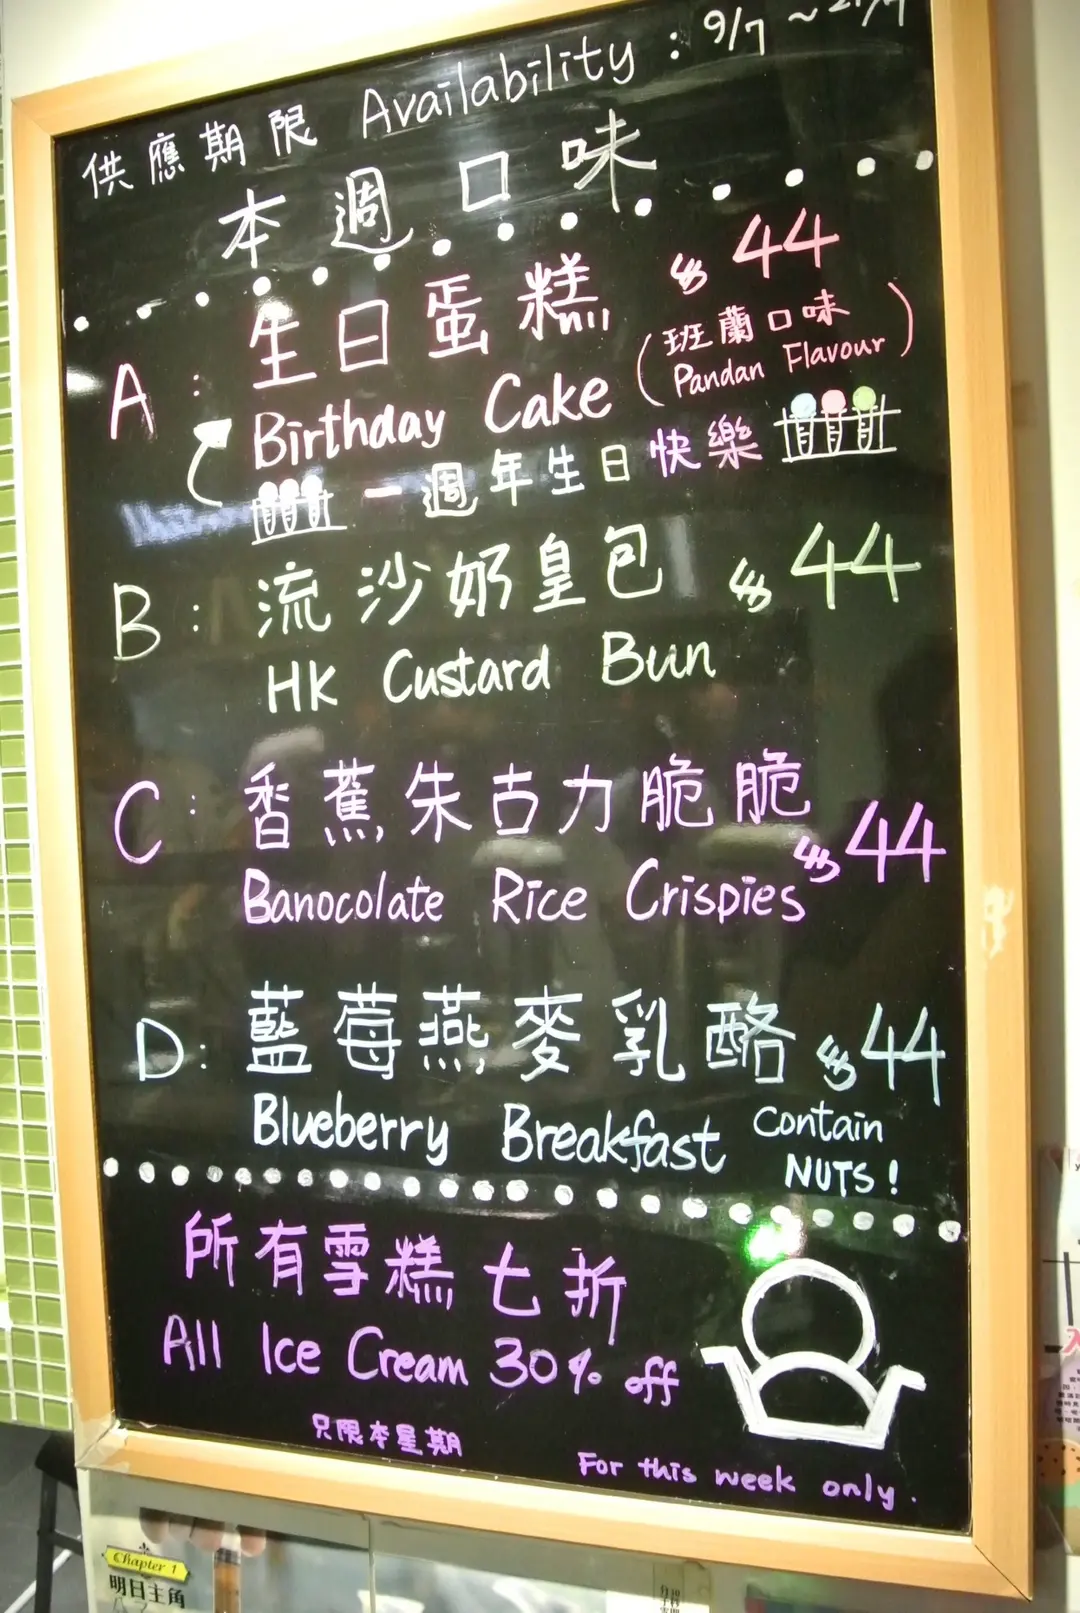 供應期限 Availability : 9/7 ~ 21/7
本週口味
A : 生日蛋糕 $44
Birthday Cake (班蘭口味 Pandan Flavour)
一週年生日快樂
B : 流沙奶皇包 $44
HK Custard Bun
C : 香蕉朱古力脆脆 $44
Banocolate Rice Crispies
D : 藍莓燕麥乳酪 $44
Blueberry Breakfast Contain NUTS!
所有雪糕七折
All Ice Cream 30% off
只限本星期
For this week only.
Chapter 1
明日主角